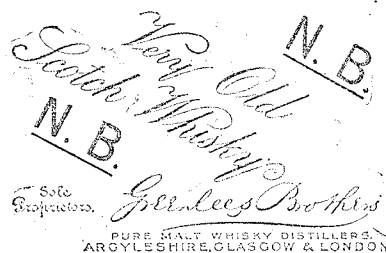 N. B.
Very Old
Scotch Whisky
N. B.
Sole
Proprietors.
Greenlees Brothers
PURE MALT WHISKY DISTILLERS,
ARGYLESHIRE, GLASGOW & LONDON